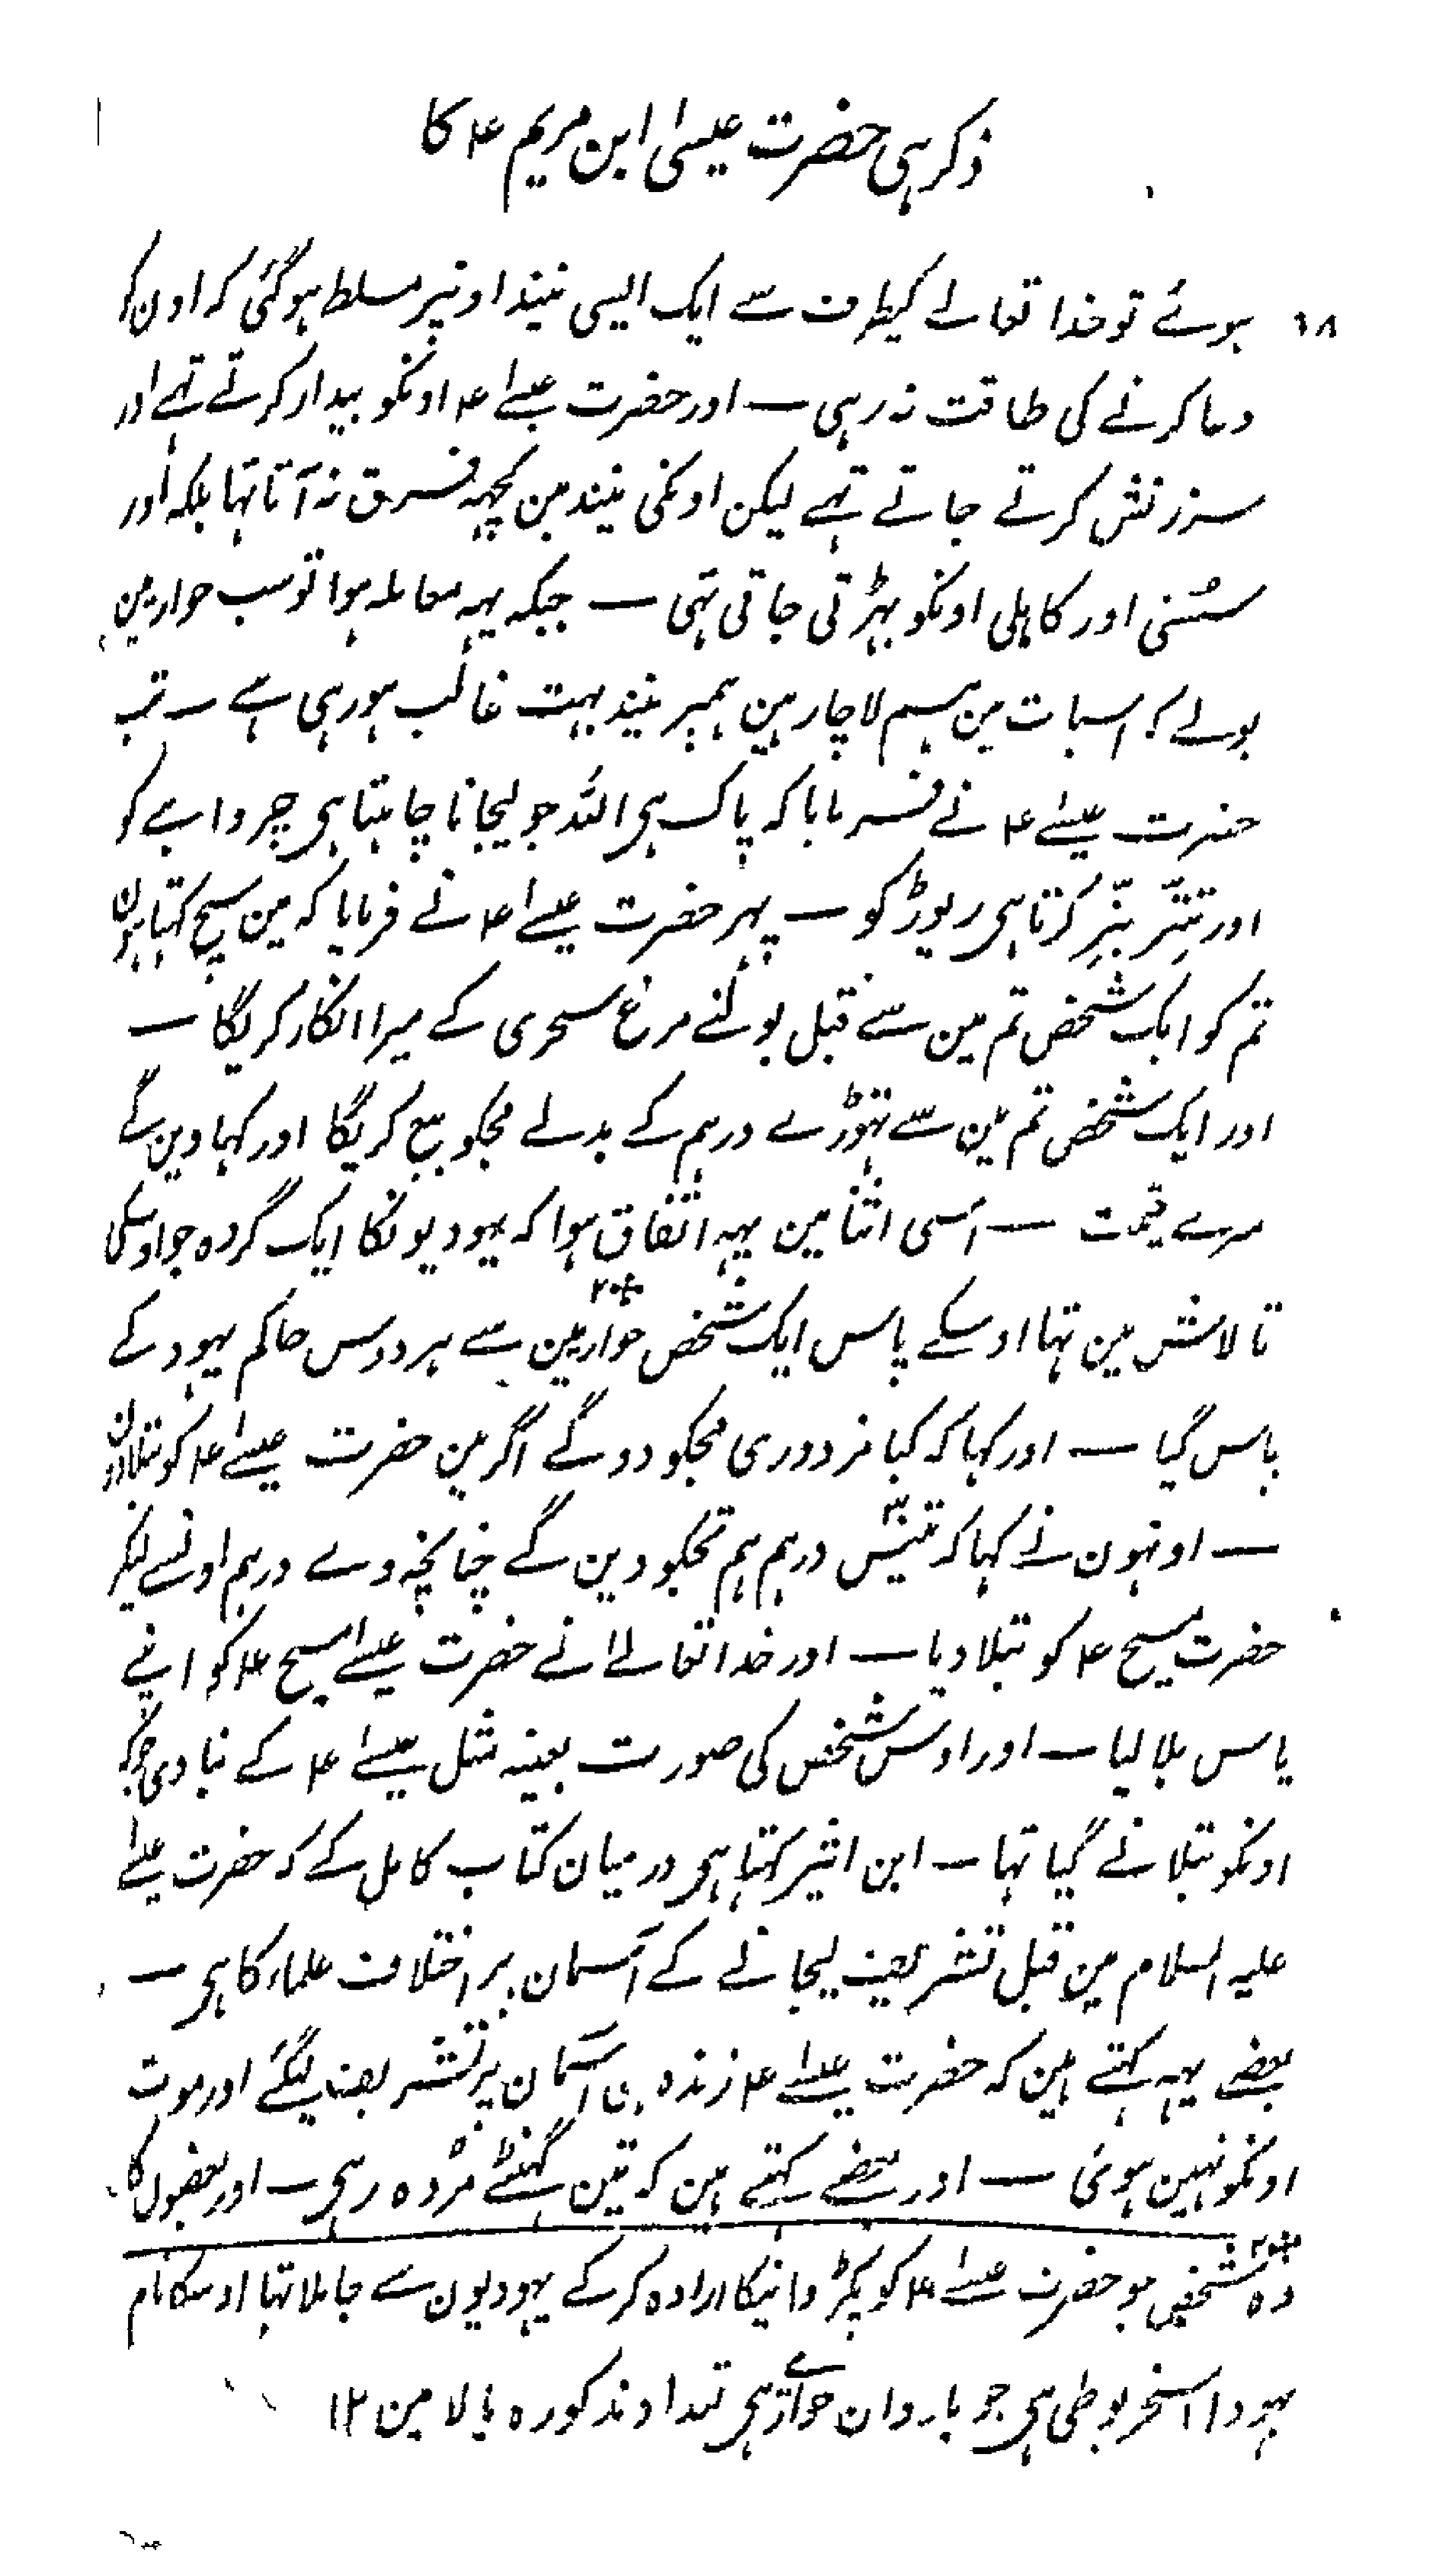 ذکر ہی حضرت عیسیٰ ابن مریم ۴ کا
۱۸ ہوئے تو خدا تعالے کیطرف سے ایک ایسی نیند اونپر مسلط ہو گئی کہ اون کو
دعا کرنے کی طاقت نہ رہی — اور حضرت عیسےٰ ۴ اونکو بیدار کرتے تہے اور
سرزنش کرتے جاتے تہے لیکن اونکی نیند مین کچہہ فرق نہ آتا تہا بلکہ اور
سُستی اور کاہلی اونکو بہڑتی جاتی تہی — جبکہ یہہ معاملہ ہوا تو سب حوارمین
بولے کہ اسبات مین ہم لاچار ہین ہمپر نیند بہت غالب ہو رہی ہے — تب
حضرت عیسےٰ ۴ نے فرمایا کہ پاک ہی اللہ جو لیجانا چاہتا ہی چرواہے کو
اور تتّر بتّر کرتا ہی ریوڑ کو — پہر حضرت عیسےٰ ۴ نے فرمایا کہ مین سچ کہتا ہون
تم کو ایک شخص تم مین سے قبل بولنے مرغ سحری کے میرا انکار کریگا —
اور ایک شخص تم مین سے تہوڑے درہم کے بدلے مجکو بیع کریگا اور کہا وین گے
مرے قیمت — اسی اثنا مین یہہ اتفاق ہوا کہ یہودیونکا ایک گروہ جو اوسکی
تالاش مین تہا اوسکے پاس ایک شخص حوارمین سے ہردوس حاکم یہود کے
پاس گیا — اور کہا کہ کیا مزدوری مجکو دوگے اگر مین حضرت عیسےٰ ۴ کو بتلادون
— اونہون نے کہا کہ تیس ۳۰ درہم ہم تجکو دین گے چنانچہ وے درہم اونسے لیکر
حضرت مسیح ۴ کو بتلا دیا — اور خدا تعالےٰ نے حضرت عیسےٰ مسیح ۴ کو اپنے
پاس بلا لیا — اور اوس شخص کی صورت بعینہ مثل عیسےٰ ۴ کے بنا دی جوکہ
اونکو بتلانے گیا تہا — ابن اثیر کہتا ہی درمیان کتاب کامل کے کہ حضرت عیسےٰ
علیہ السلام مین قبل تشریف لیجانے کے آسمان پر اختلاف علماء کا ہی —
بعضے یہہ کہتے ہین کہ حضرت عیسےٰ ۴ زندہ ہی آسمان پر تشریف لیگئے اور موت
اونکو نہین ہوئی — اور بعضے کہتے ہین کہ تین گہنٹے مُردہ رہی — اور بعضون کا
وہ شخص جو حضرت عیسےٰ ۴ کو پکڑوانیکا ارادہ کرکے یہودیون سے جا ملا تہا اوسکا نام
یہودا اسخریوطی ہی جو باروان حوارے ہی تعداد مذکورہ بالا مین ۱۲